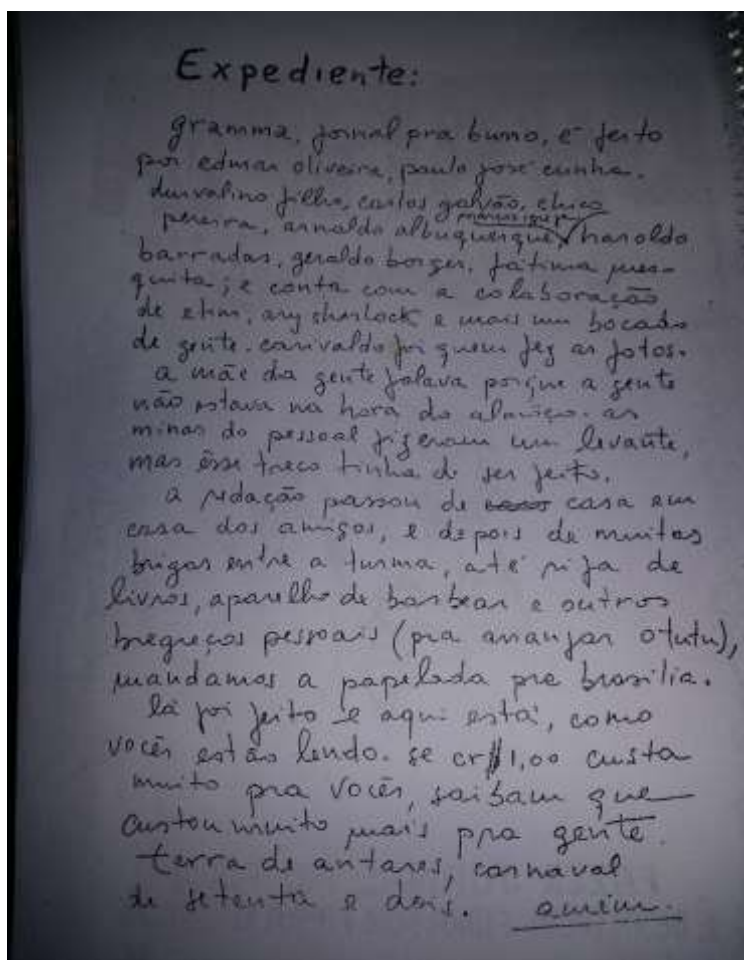 Expediente:
gramma, jornal pra burro, é feito
por edmar oliveira, paulo josé cunha,
durvalino filho, carlos galvão, chico
pereira, arnaldo albuquerque, haroldo
barradas, geraldo borges, fátima mes-
quita; e conta com a colaboração
de etim, ary sherlock e mais um bocado
de gente. carivaldo foi quem fez as fotos.
a mãe da gente falava porque a gente
não estava na hora do almoço. as
minas do pessoal fizeram um levante,
mas êsse treco tinha de ser feito.
a redação passou de casa em
casa dos amigos, e depois de muitas
brigas entre a turma, até rifa de
livros, aparelho de barbear e outros
bregueços pessoais (pra arranjar o tutu),
mandamos a papelada pra brasília.
lá foi feito e aqui está, como
vocês estão lendo. se cr$1,00 custa
muito pra vocês, saibam que
custou muito mais pra gente.
terra de antares, carnaval
de setenta e dois. amém.